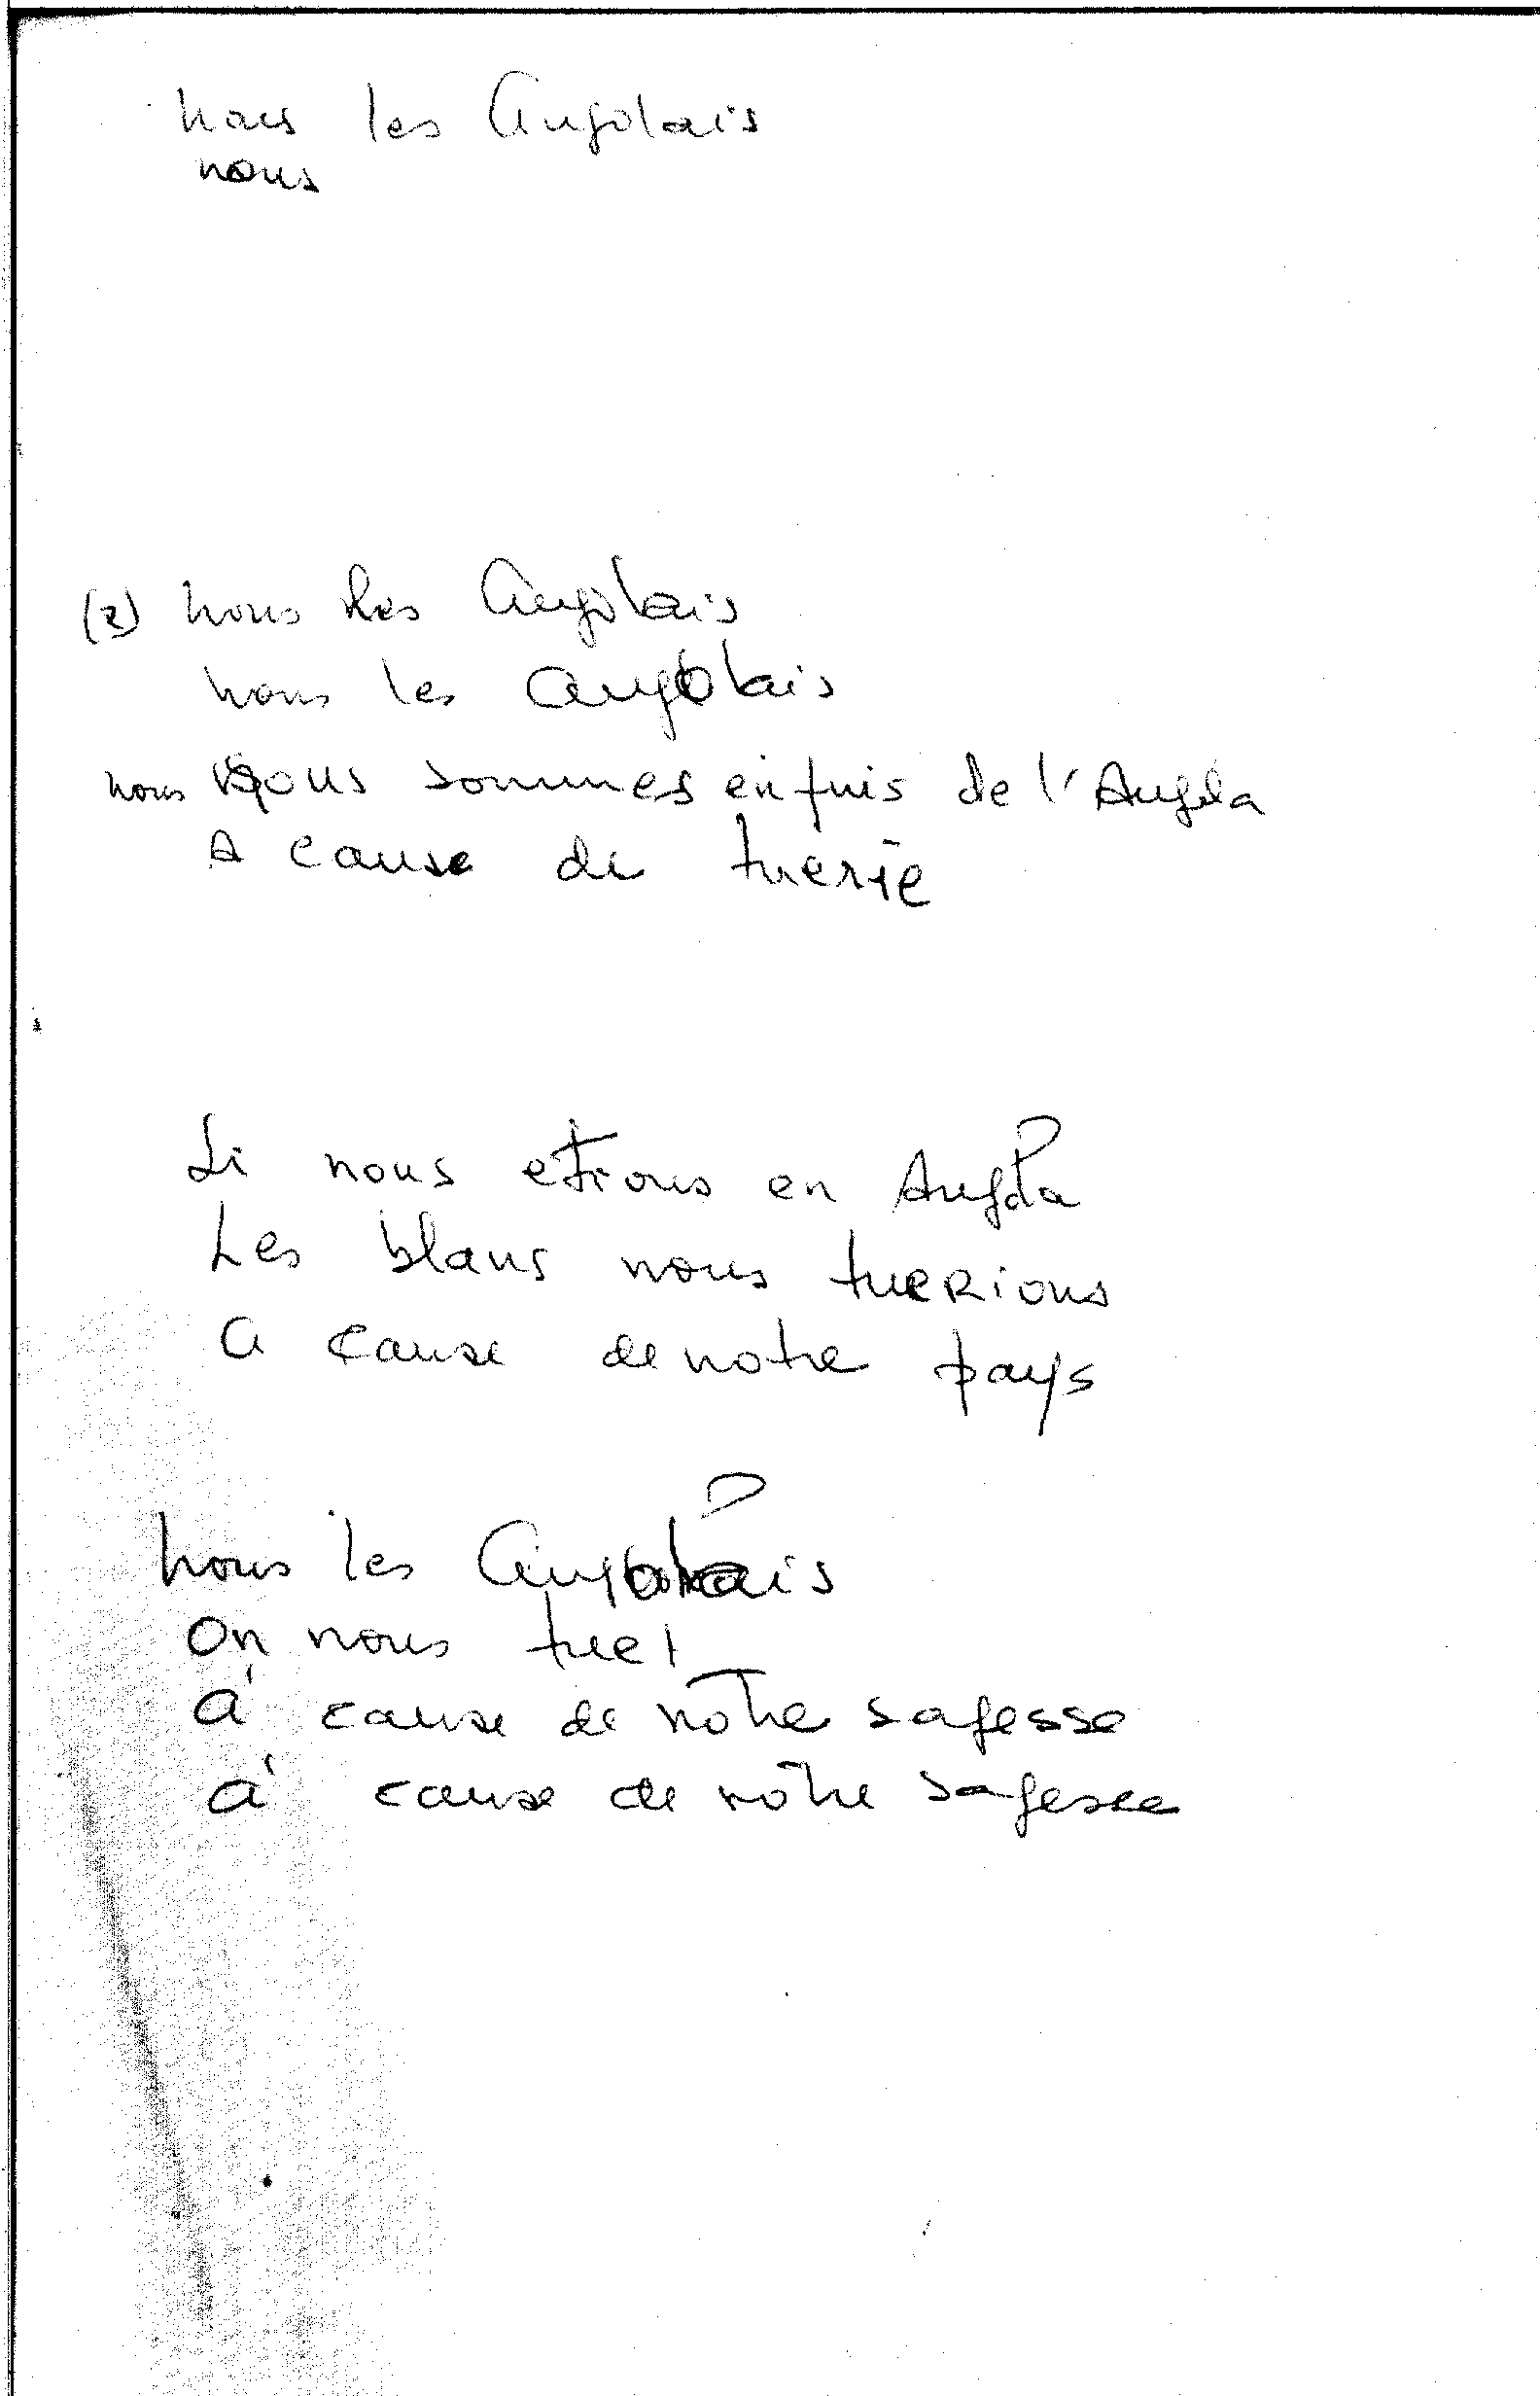 nous les Angolais
nous
(2) nous les Angolais
nous les Angolais
nous nous sommes enfuis de l'Angola
A cause de tuerie
Si nous etions en Angola
Les blans nous tuerions
A cause de notre pays
nous les Angolais
On nous tue!
à cause de notre sagesse
à cause de notre sagesse